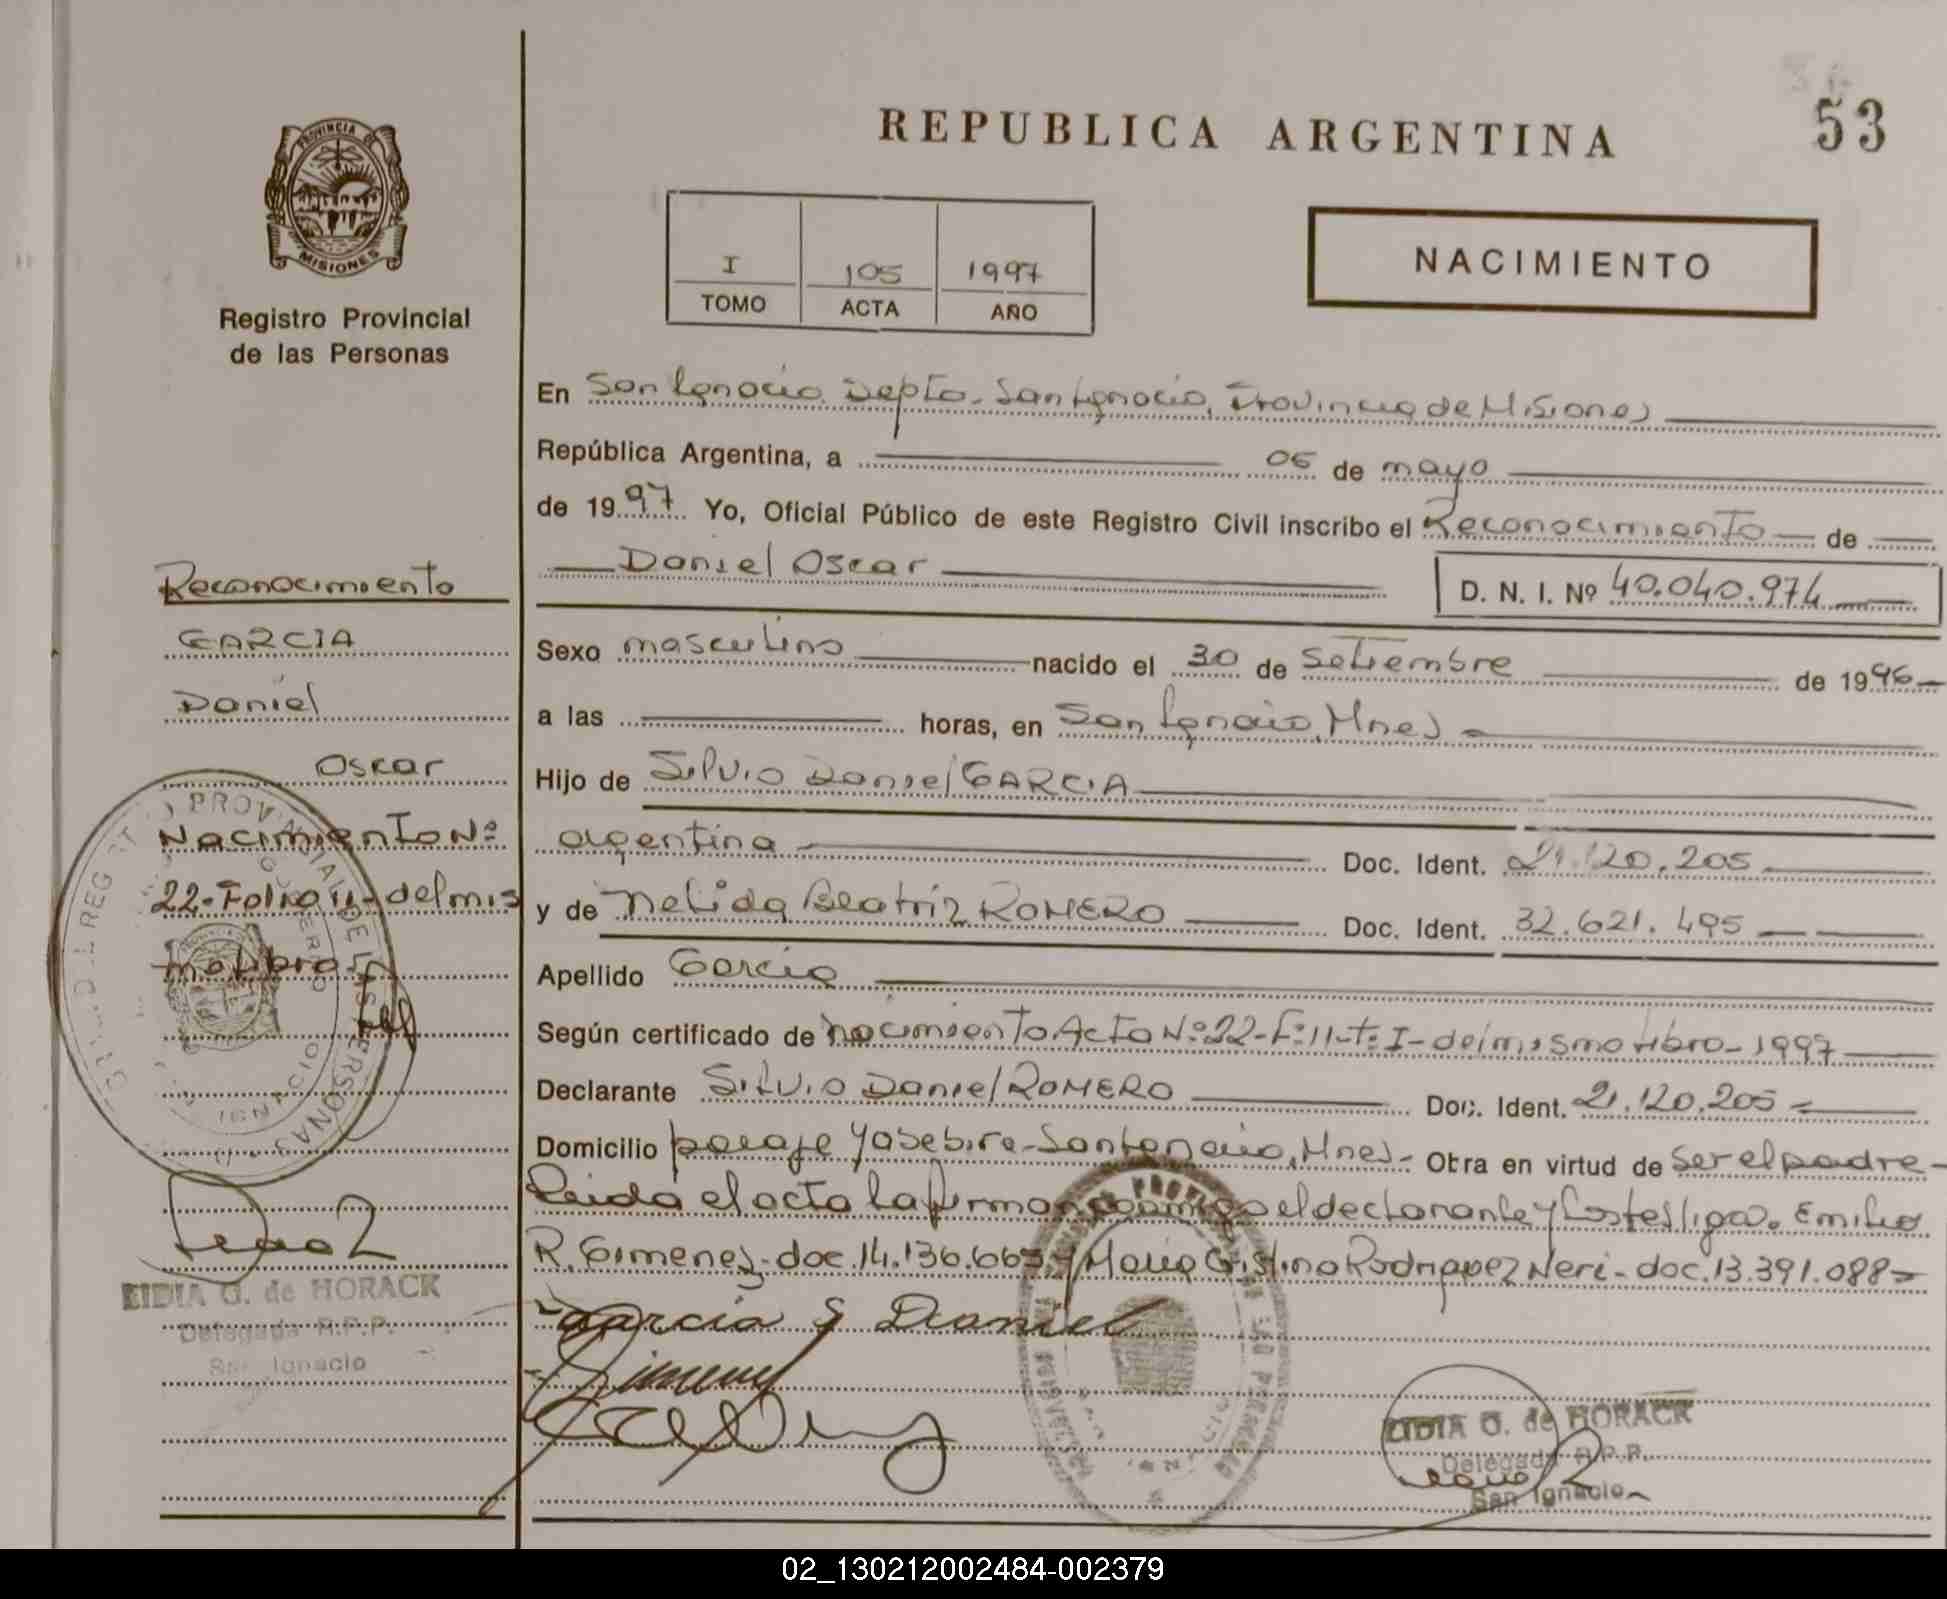 PROVINCIA DE
MISIONES
Registro Provincial
de las Personas
REPUBLICA ARGENTINA
53
I 105 1997
TOMO ACTA AÑO
NACIMIENTO
En San Ignacio Depto. San Ignacio, Provincia de Misiones
República Argentina, a 05 de mayo
de 1997 Yo, Oficial Público de este Registro Civil inscribo el Reconocimiento de
Daniel Oscar
D. N. I. Nº 40.040.974
Sexo masculino nacido el 30 de Setiembre de 1996
a las horas, en San Ignacio, Mnes
Hijo de Silvio Daniel GARCIA
argentina Doc. Ident. 21.120.205
y de Nelida Beatriz ROMERO Doc. Ident. 32.621.495
Apellido Garcia
Según certificado de nacimiento Acta Nº 22-Fº11-tºI-del mismo libro-1997
Declarante Silvio Daniel ROMERO Doc. Ident. 21.120.205
Domicilio paraje Yasebire-San Ignacio, Mnes- Otra en virtud de ser el padre-
Leida el acta la firman conmigo el declarante y los testigos. Emilio
R. Gimenez-doc.14.136.663 y Maria Cristina Rodriguez Neri-doc.13.391.088
Garcia S Daniel
Jimenez
LIDIA G. de HORACK
Delegada R.P.P.
San Ignacio
Reconocimiento
GARCIA
Daniel
Oscar
Nacimiento Nº
22-Folio 11-del mis
mo libro
LIDIA G. de HORACK
Delegada R.P.P.
San Ignacio
02_130212002484-002379